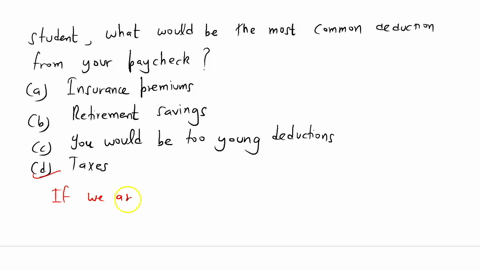 student, what would be the most common deduction
from your paycheck?
(a) Insurance premiums
(b) Retirement savings
(c) You would be too young deductions
(d) Taxes
If we ar